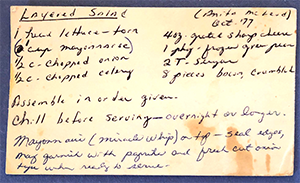 Layered Salad (Anita McLeod)
Oct. 77
1 head lettuce - torn 4 oz. grated sharp cheese
1 cup mayonnaise 1 pkg - frozen green peas
1/2 c - chopped onion 2 T - Sugar
1/2 c. - chopped celery 8 pieces bacon, crumbled
Assemble in order given.
Chill before serving - overnight or longer.
Mayonnaise (miracle whip) on top - seal edges,
may garnish with paprika and fresh cut onion
tops when ready to serve.